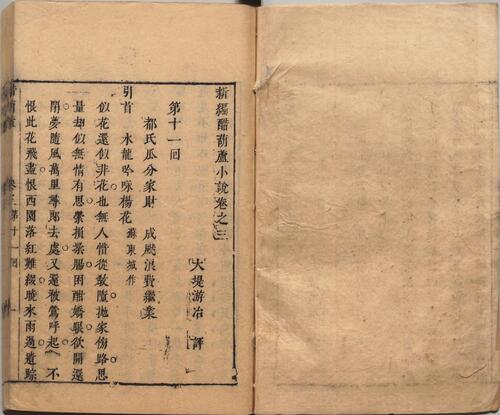 新編醋葫蘆小說卷之三
大堤游冶　評
第十一回
都氏瓜分家財　成飈浪費繼業
引首　水龍吟咏楊花　蘇東坡作
似花還似非花也無人惜從敎墮抛家傍路思
量却似無情有思縈損柔腸困酣嬌眼欲開還
閉夢隨風萬里尋郎去處又還被鶯呼起　不
恨此花飛盡恨西園落紅難綴曉來雨過遺踪
醋葫蘆　卷三第十一回　一